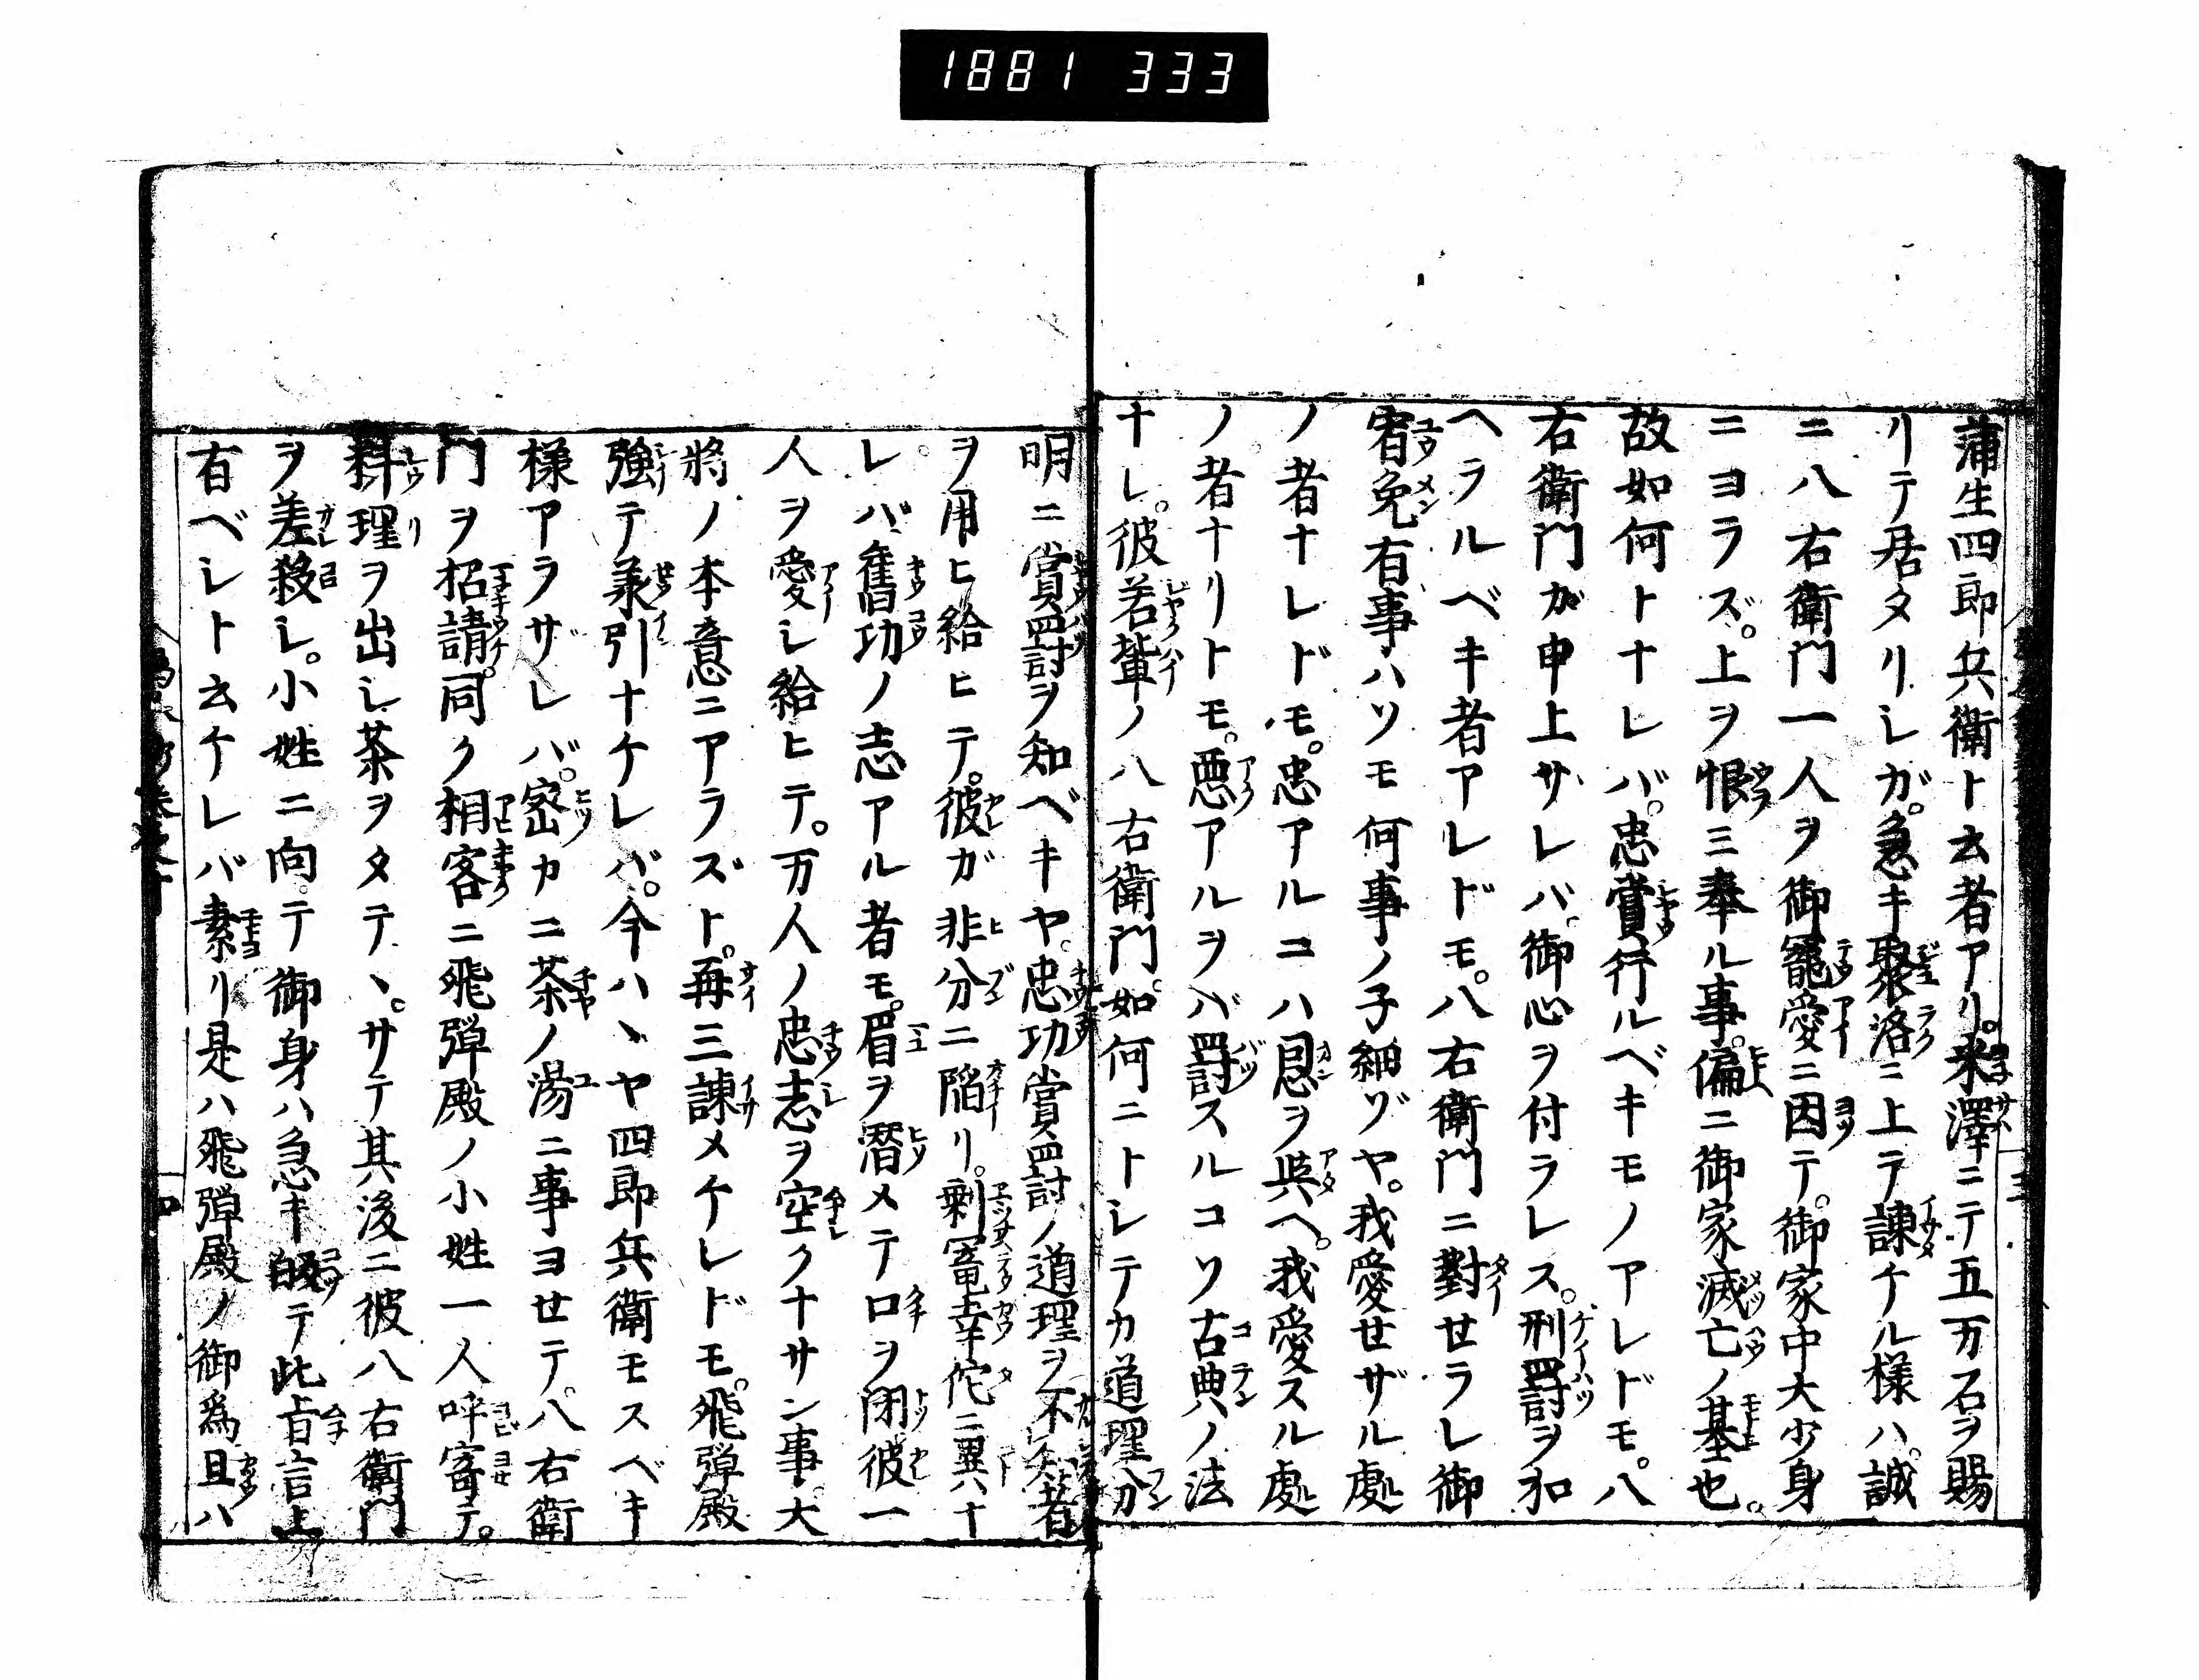 1881 333
蒲生四郎兵衛ト云者アリ。米澤ニテ五万石ヲ賜
リテ居タリシガ。急キ聚洛ニ上テ諫チル様ハ。誠
ニ八右衛門一人ヲ御寵愛ニ因テ。御家中大少身
ニヨラズ。上ヲ恨ミ奉ル事。偏ニ御家滅亡ノ基也。
故如何トナレバ。忠賞行ルベキモノアレドモ。八
右衛門ガ申上サレバ。御心ヲ付ラレス。刑罸ヲ加
ヘラルベキ者アレドモ。八右衛門ニ對せラレ御
宥免有事ハソモ何事ノ子細ゾヤ。我愛せザル處
ノ者ナレドモ。忠アルニハ恩ヲ與ヘ。我愛スル處
ノ者ナリトモ。惡アルヲバ罸スルコソ古典ノ法
ナレ。彼若輩ノ八右衛門。如何ニトシテカ道理分
明ニ賞罸ヲ知ベキヤ。忠功賞罸ノ道理ヲ不知者
ヲ用ヒ給ヒテ。彼ガ非分ニ陥リ。剰冨竜幸佗ニ異ナ
レバ。舊功ノ志アル者モ。眉ヲ潜メテ口ヲ閉彼一
人ヲ愛シ給ヒテ。万人ノ忠志ヲ空クナサン事。大
將ノ本意ニアラズト。再三諫メケレドモ。飛弾殿
強テ羕引ナケレバ。今ハヽヤ四郎兵衛モスベキ
様アラザレバ。密カニ茶ノ湯ニ事ヨせテ。八右衛
門ヲ招請。同ク相客ニ飛弾殿ノ小姓一人呼寄テ。
料理ヲ出シ茶ヲタテヽ。サテ其後ニ彼八右衛門
ヲ差殺シ。小姓ニ向テ御身ハ急キ皈テ此旨言上
有ベシト云ケレバ素リ是ハ飛弾殿ノ御爲且ハ